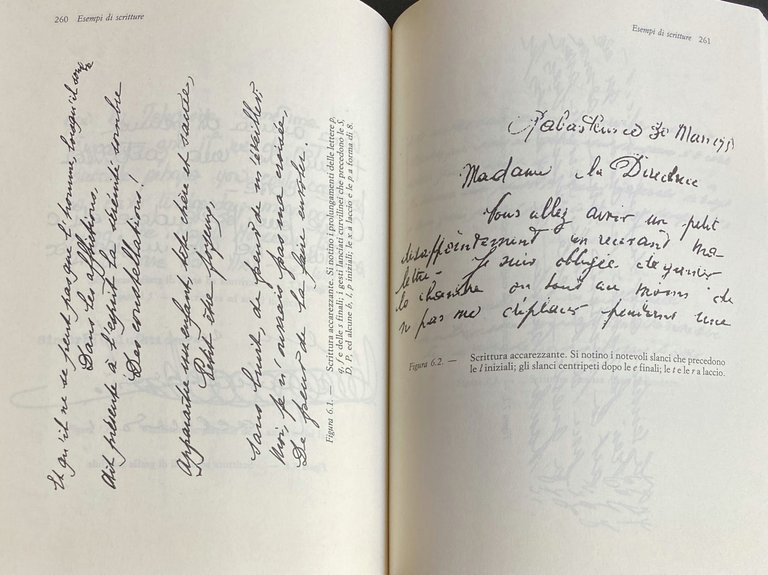 260 Esempi di scritture
Et qu'il ne se peut pas que l'homme, lorsqu'il
Dans les afflictions,
Ait présente à l'esprit la sérénité sombre
Des constellations!
Apparaître un enfant, tête chère et sacrée,
Petit être joyeux,
Sans bruit, de peur de m'éveiller,
Moi, je n'ouvrais pas ma croisée,
De peur de la faire envoler.
Figura 6.1. — Scrittura accarezzante. Si notino i prolungamenti delle lettere p,
q, f e delle s finali; i gesti lanciati curvilinei che precedono le S,
D, P, ed alcune b, l, p iniziali; le x a laccio e le p a forma di 8.
Esempi di scritture 261
30 Mars
Madame la Directrice
Vous allez avoir un petit
désappointement en recevant ma
lettre. Je suis obligée de garder
la chambre ou tout au moins de
n pas me déplacer pendant une
Figura 6.2. — Scrittura accarezzante. Si notino i notevoli slanci che precedono
le l iniziali; gli slanci centripeti dopo le e finali; le t e le r a laccio.